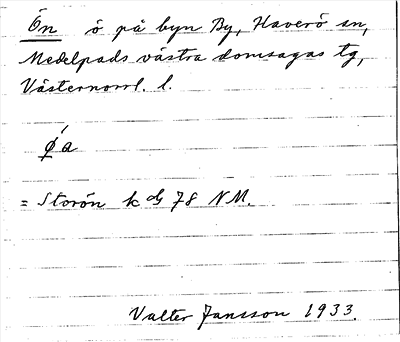 Ön ö på byn By, Haverö sn,
Medelpads västra domsagas tg,
Västernorrl. l.
ǿa
= Storön k dg 78 NM.
Valter Jansson 1933.